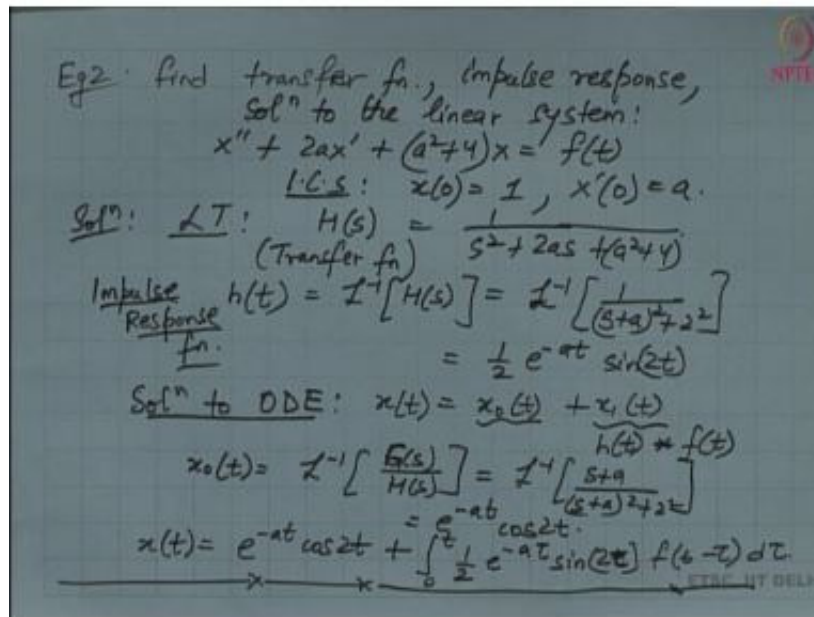 Eg2. find transfer fn., impulse response,
NPTE
Solⁿ to the linear system:
x'' + 2ax' + (a²+4)x = f(t)
I.C.S: x(0) = 1, x'(0) = a.
Solⁿ: LT: H(s) = 1/(s² + 2as + (a²+4))
(Transfer fn)
Impulse h(t) = L⁻¹[H(s)] = L⁻¹[1/((s+a)²+2²)]
Response
fn. = 1/2 e^(-at) sin(2t)
Solⁿ to ODE: x(t) = x₀(t) + x₁(t)
h(t) * f(t)
x₀(t) = L⁻¹[G(s)/H(s)] = L⁻¹[(s+a)/((s+a)²+2²)]
= e^(-at) cos2t.
x(t) = e^(-at) cos2t + ∫₀ᵗ 1/2 e^(-aτ) sin(2τ) f(t-τ) dτ.
ETSC, IIT DELH